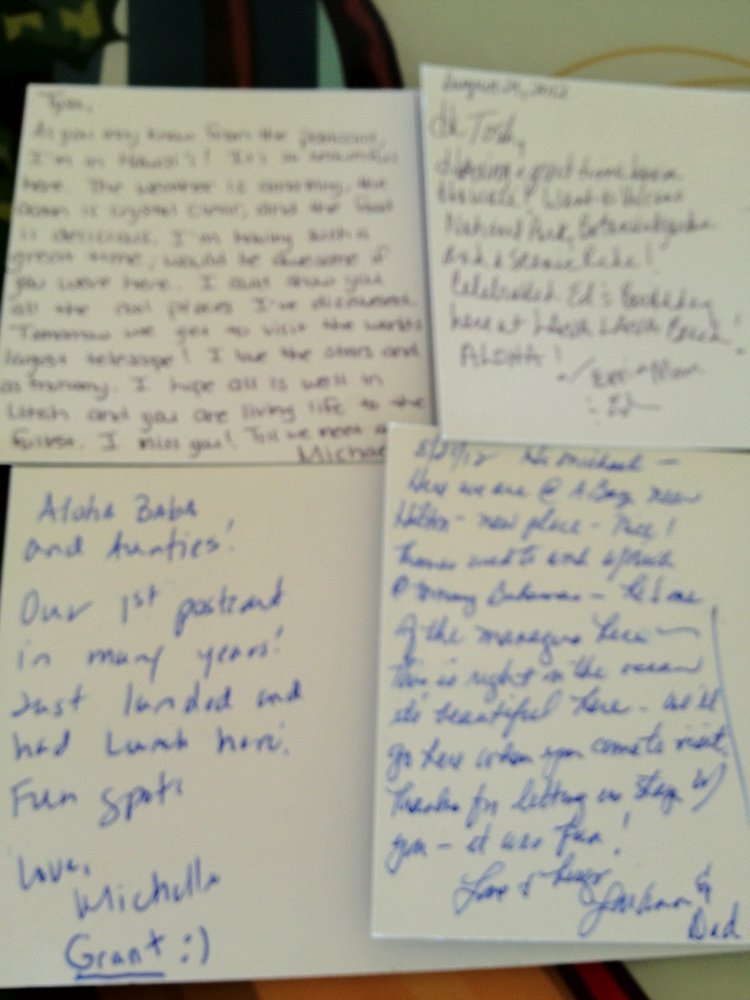 Tom,
As you may know from the postcard,
I'm in Hawai'i! It's so beautiful
here. The weather is amazing, the
ocean is crystal clear, and the food
is delicious. I'm having such a
great time, would be awesome if
you were here. I could show you
all the cool places I've discovered.
Tomorrow we get to visit the world's
largest telescope! I love the stars and
astronomy. I hope all is well in
and you are living life to the
fullest. I miss you! Till we meet
Michae
August 2012
Hi Tosh,
Having a great time here in
Hawaii! Went to Volcano
National Park, Botanical garden
and a
Celebrated Ed's Birthday
here at Beach!
ALOHA!
Aloha Baba
and Aunties!
Our 1st postcard
in many years!
Just landed and
had Lunch here!
Fun spot!
Love,
Michelle
Grant :)
8/21/12 Hi Michael -
Here we are @ A Bay near
Hilton - new place - nice!
Thomas used to work
@ Tommy Bahamas - he's one
of the managers here -
This is right on the ocean
it's beautiful here - we'll
go here when you come to visit.
Thanks for letting us stay w/
you - it was fun!
Love & hugs
&
Dad